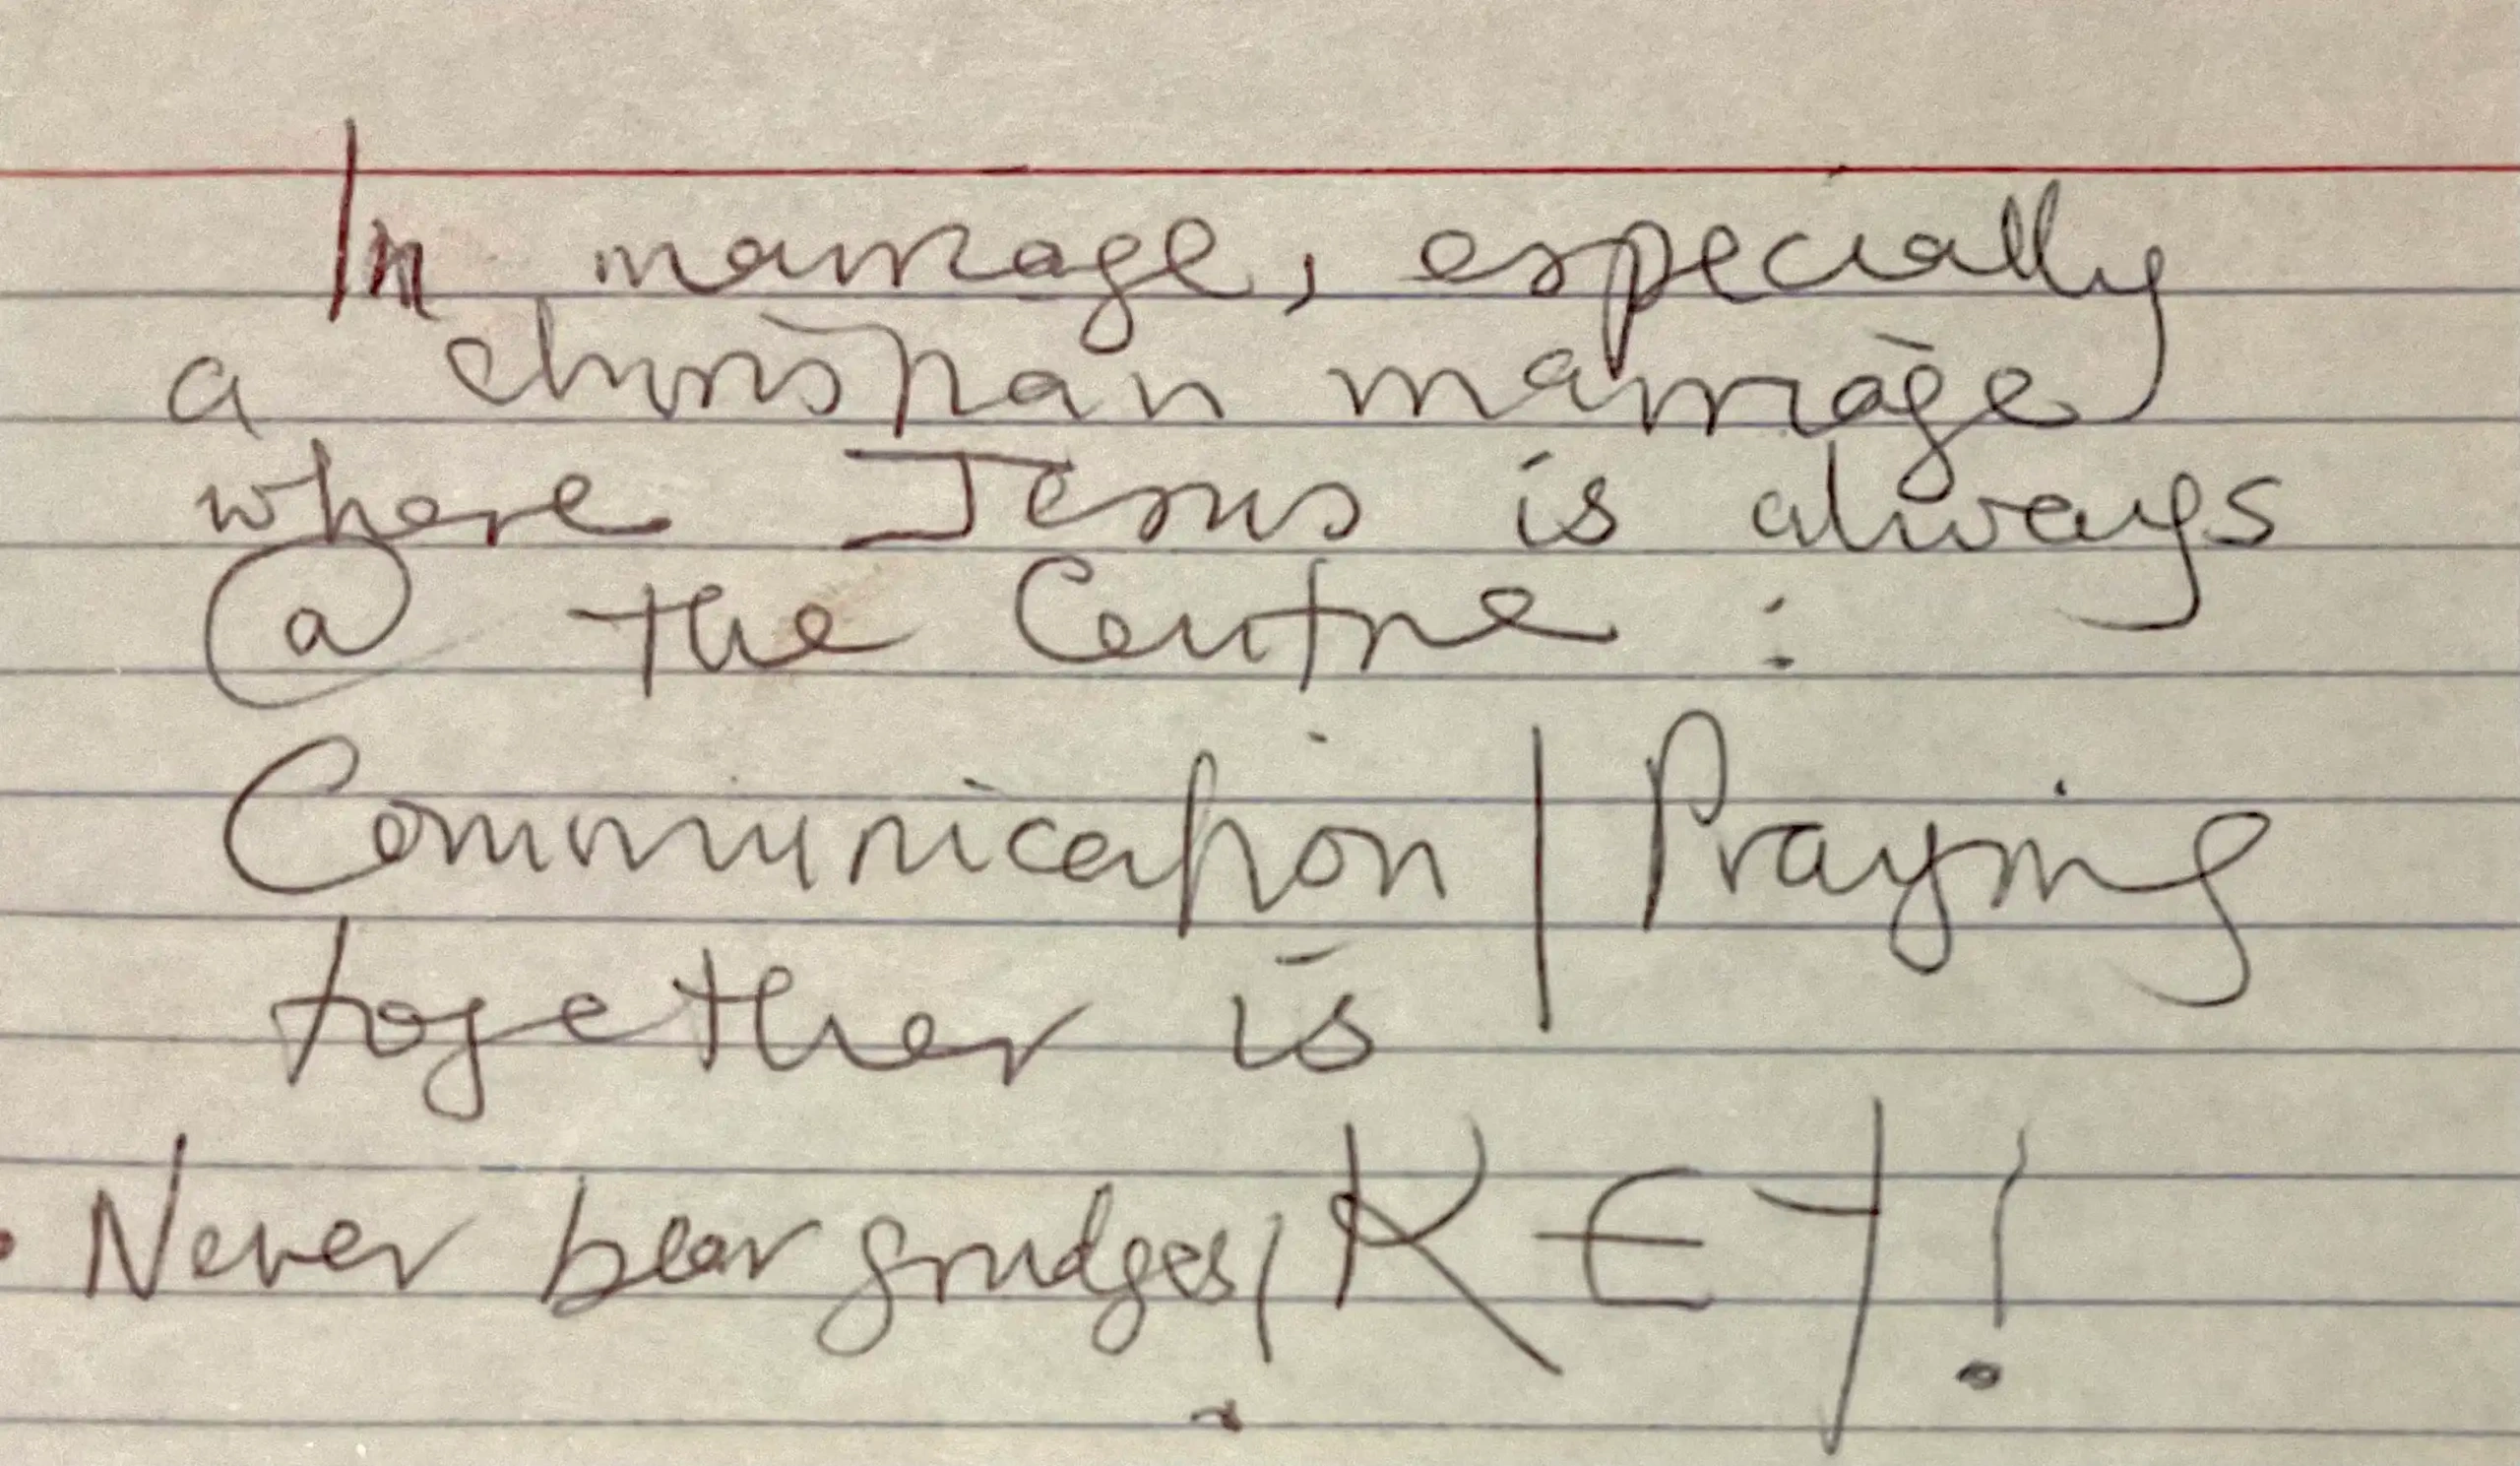 In marriage, especially
a christian marriage
where Jesus is always
@ the Centre :
Communication | Praying
together is
• Never bear grudges! KEY!